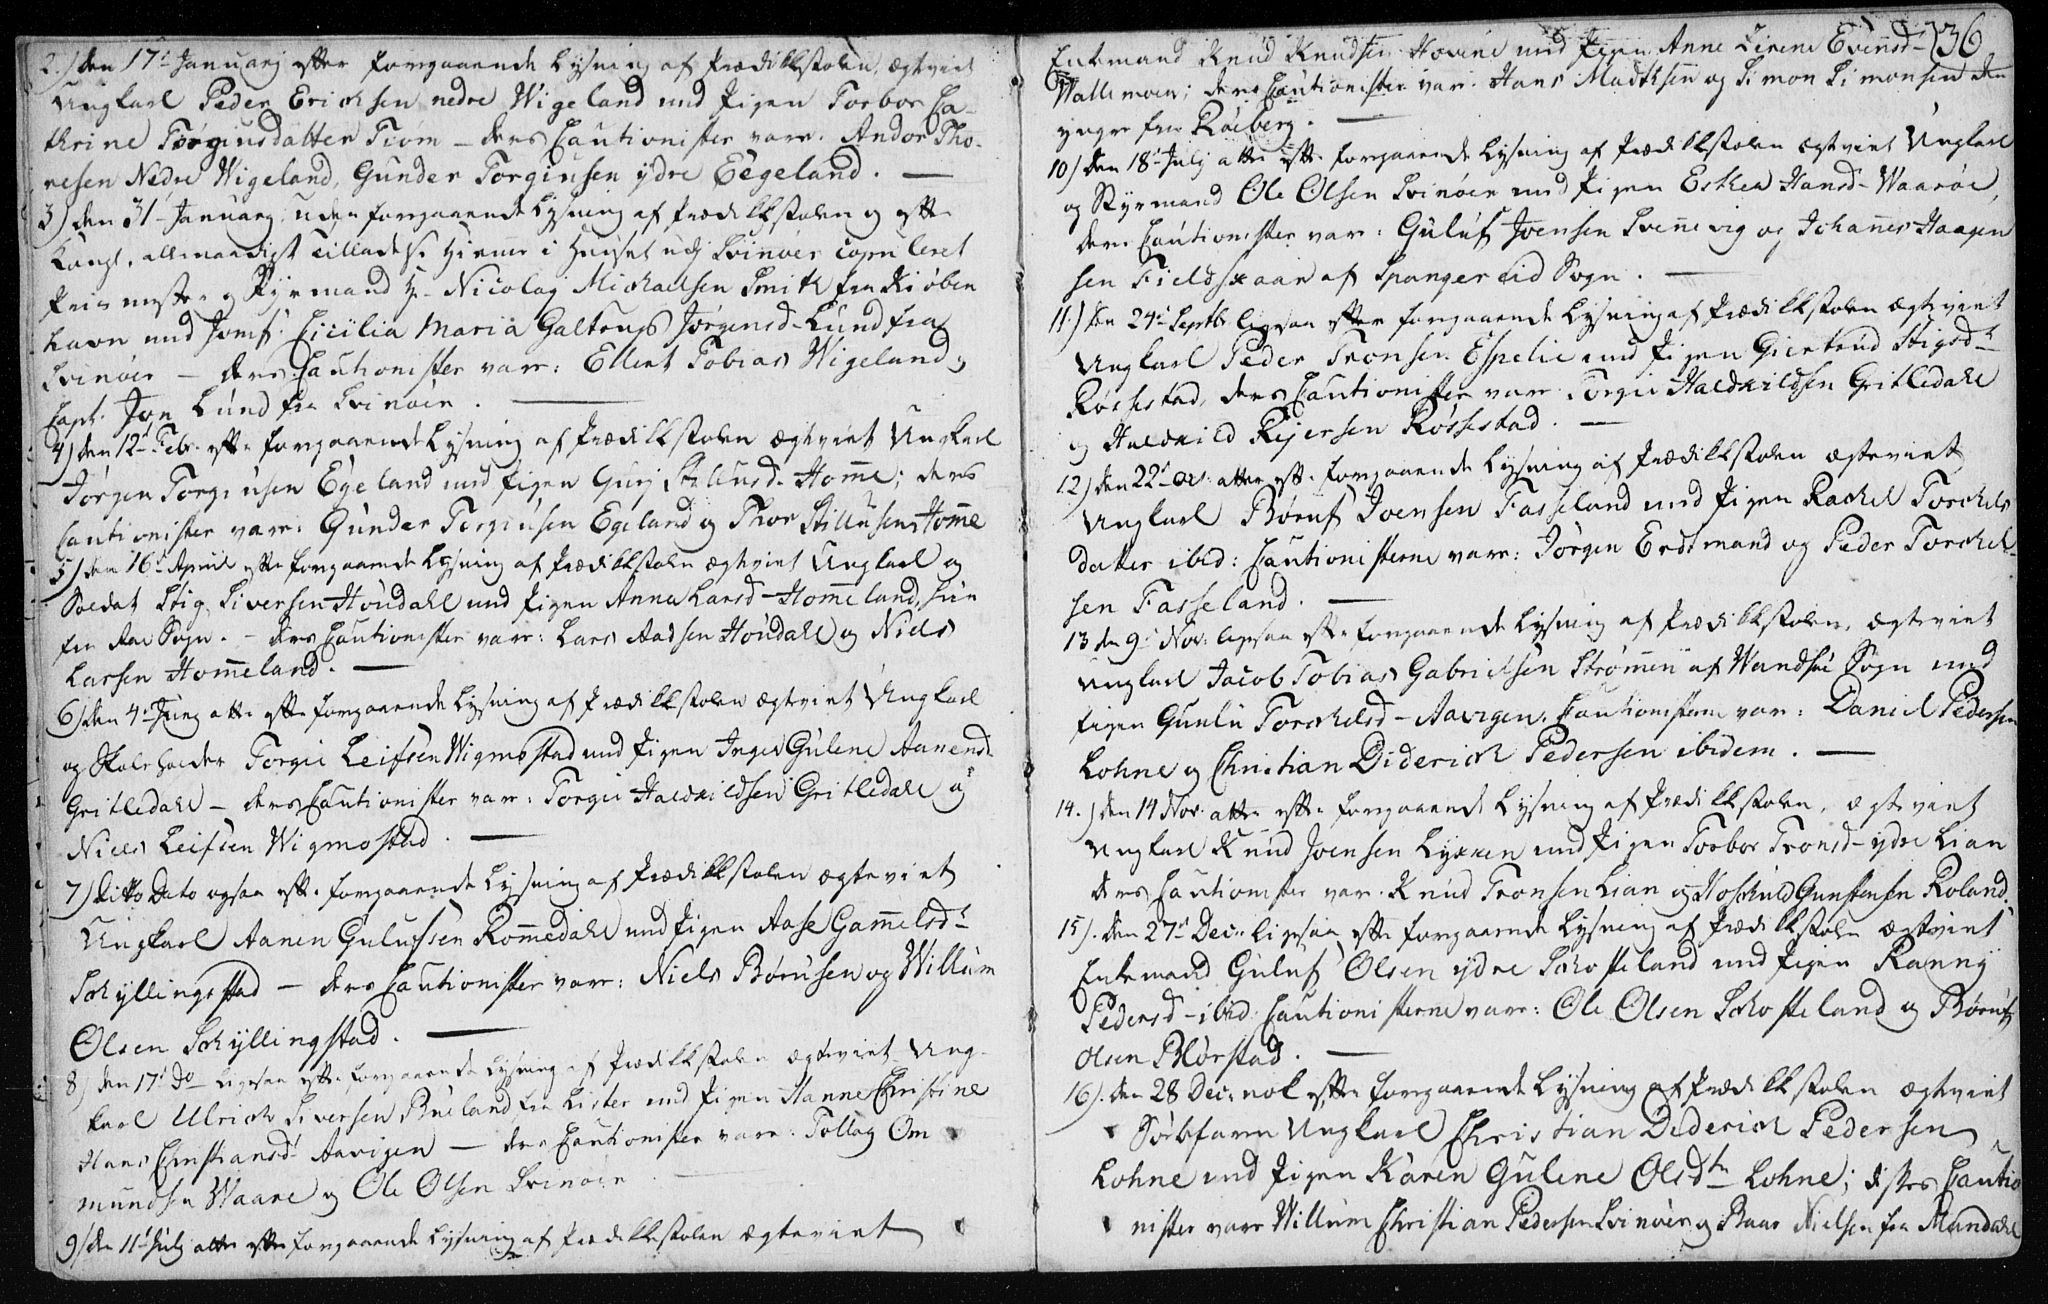 2.) den 17de Januarj efter foregaaende Lysning af Prædikestolen, ægteviet
Ungkarl Peder Erichsen nedre Wigeland med Pigen Torbor Ca-
thrine Torgiusdatter Tiom - deres Cautionister varr. Andor Tho-
resen Nedre Wigeland, Gunder Torgiusen ydre Eegeland. —
3) den 31 Januarj, uden foregaaende Lysning af Prædikestolen og efter
Kongl. allernaadigst Tilladelse hiemme i Huuset udj Svinøer copuleret
og Styrmand Hr. Nicolay Michaelsen Smith fra Kiøben
havn med Jomf. Cicilia Maria Galtrups Jørgensd. Lund fra
Svinøer - deres Cautionister varr: Ellert Tobias Wigeland,
Capt. Jon Lund fra Svinøer. —
4) den 12 Febr. efter foregaaende Lysning af Prædikestolen ægteviet Ungkarl
Jørgen Torgiusen Egeland med Pigen Gurj Stillusd. Homme; deres
Cautionister varr: Gunder Torgiusen Egeland og Thor Stillusen Homme
5) den 16 April efter foregaaende Lysning af Prædikestolen ægteviet Ungkarl og
Soldat Stig Siversen Høudahl med Pigen Anna Larsd. Homeland, hun
fra Aae Sogn. - deres Cautionister varr: Lars Aadsen Høudahl og Niels
Larsen Homeland. —
6) den 4 Junj atter efter foregaaende Lysning af Prædikestolen ægteviet Ungkarl
og Skoleholder Torgie Leifsen Wigmostad med Pigen Inger Gulene Aanensd.
Gritledahl - deres Cautionister var: Torgie Haldkildsen Gritledahl og
Niels Leifsen Wigmostad. —
7) Ditto Dato ogsaa efter foregaaende Lysning af Prædikestolen ægteviet
Ungkarl Aanen Gulufsen Rommedahl med Pigen Aase Gammelsdt
Schyllingstad - deres Cautionister varr: Niels Børusen og Willum
Olsen Schyllingstad. —
8) den 17de Do ligesaa efter foregaaende Lysning af Prædikestolen ægteviet Ung-
karl Ulrich Siversen Brueland fra Lister med Pigen Hanne Christine
Hans Christiansd. Aavigen - deres Cautionister varr: Tollag Om
mundsen Waare og Ole Olsen Svinøer
9) den 11 Julj atter efter foregaaende Lysning af Prædikestolen ægteviet
136
Enkemand Knud Knudsen Hovene med Pigen Anne Sirene Evensd.
Wallemoen; deres Cautionister var. Hans Madtsen og Simon Simonsen den
yngre fra Røeberg. —
10) den 18 Julj atter efter foregaaende Lysning af Prædikestolen ægteviet Ungkarl
og Styrmand Ole Olsen Svinøer med Pigen Esther Hansd. Waarøe
deres Cautionister var: Guluf Joensen Svinevig og Johannes Haagen
sen Fieldskaar af Spangereid Sogn. —
11.) den 24 Septbr ligesaa efter foregaaende Lysning af Prædikestolen ægteviet
Ungkarl Peder Tronsen Espelie med Pigen Giertrud Stigsdt
Røssestad, deres Cautionister varr Torgie Haldkildsen Gritledahl
og Haldkild Rejersen Røssestad. —
12) den 22de atter efter foregaaende Lysning af Prædikestolen ægteviet
Ungkarl Børuf Joensen Fasseland med Pigen Rachel Torchels
datter ibid: Cautionisterne varr: Jørgen Erdtmand og Peder Torchel-
sen Fasseland. —
13 den 9 Nov: ligesaa efter foregaaende Lysning af Prædikestolen, ægteviet
Ungkarl Jacob Tobias Gabrielsen Strømmen af Wandsøe Sogn med
Pigen Gunlu Torchelsd. Aavigen. Cautionisterne var: Daniel Pedersen
Lohne og Christian Diderich Pedersen ibidem. —
14.) den 14 Nov. atter efter foregaaende Lysning af Prædikestolen, ægteviet
Ungkarl Knud Joensen Lykken med Pigen Torbor Tronsd. ydre Lian
deres Cautionister var. Knud Tronsen Lian og Hoschuld Gunstensen Roland.
15). den 27de Dec: ligesaa efter foregaaende Lysning af Prædikestolen ægteviet
Enkemand Guluf Olsen ydre Schofteland med Pigen Ranny
Pedersd. ibid. Cautionisterne varr: Ole Olsen Schofteland og Børuf
Olsen Blørstad. —
16). den 28 Dec: nok efter foregaaende Lysning af Prædikestolen ægteviet
Søefaren Ungkarl Christian Dederich Pedersen
Lohne med Pigen Karen Gulene Olsdtr Lohne; disses Cautio
nister varr Willum Christian Pedersen Svinøer og Baar Nielsen fra Mandahl